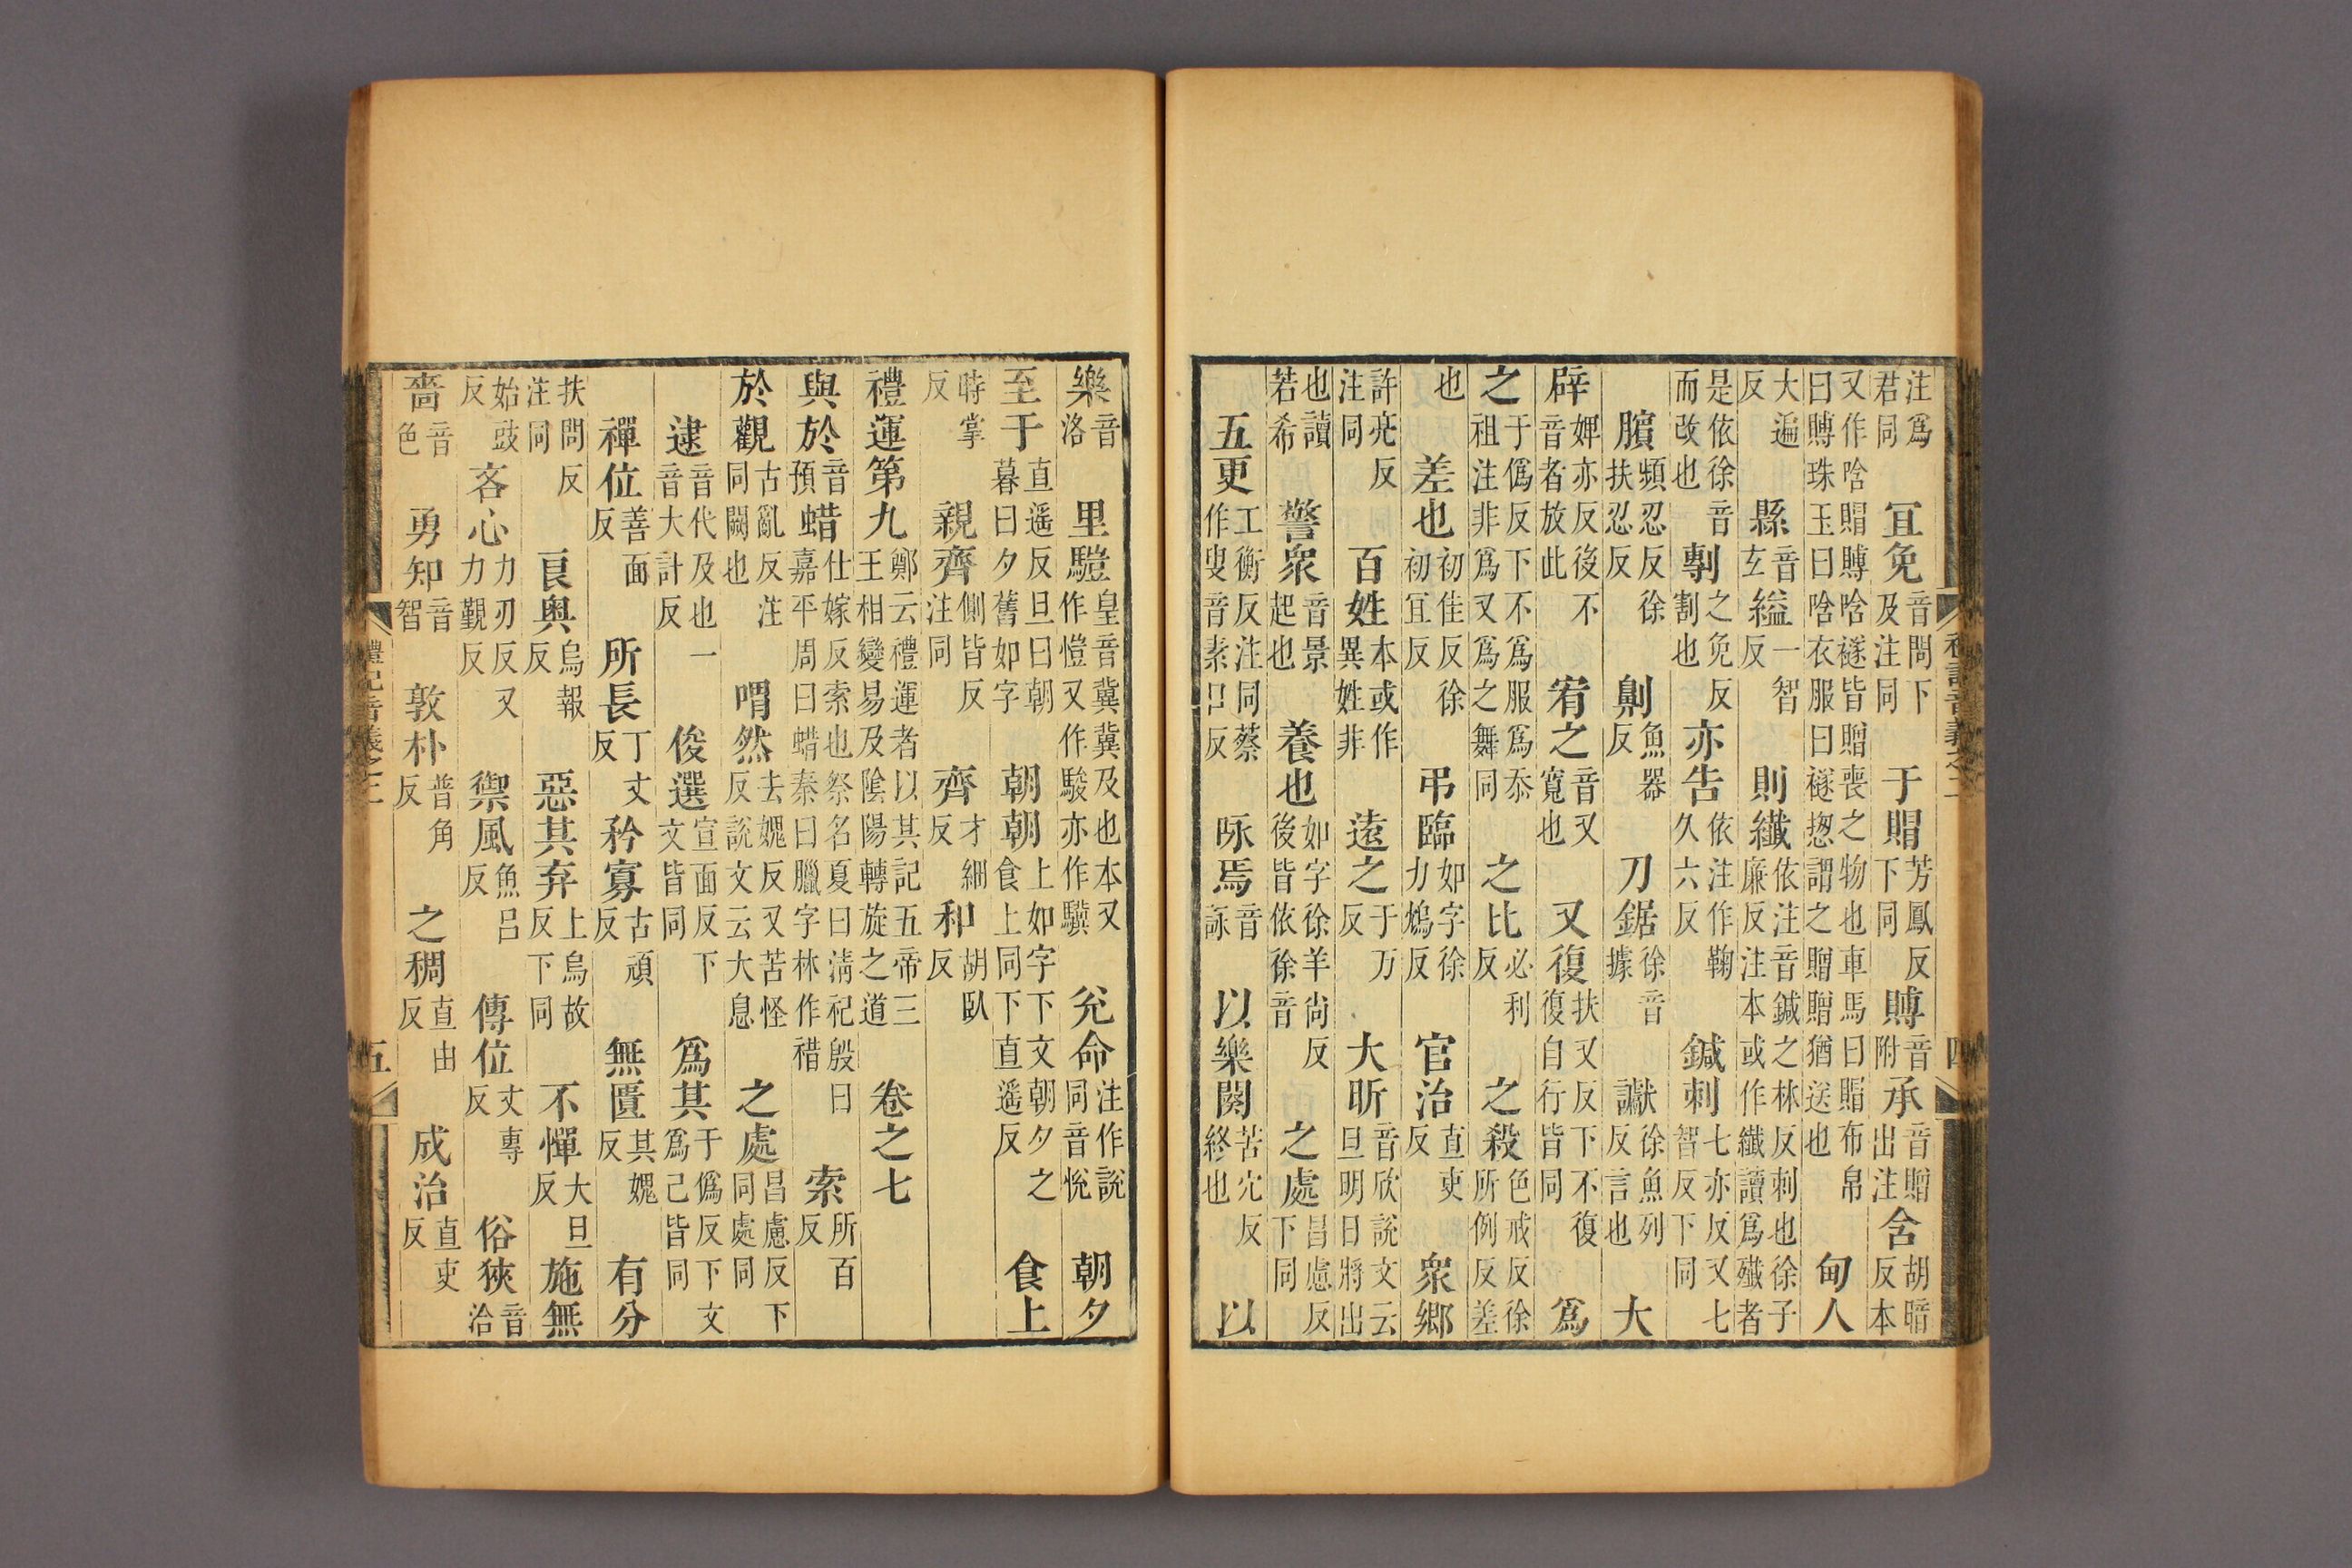 注爲君同 宜免音問下及注同 于賵芳鳳反下同 賻音附 承音贈出注 含胡暗反本
又作唅賵賻唅襚皆贈喪之物也車馬曰賵布帛曰賻珠玉曰唅衣服曰襚揔謂之贈贈猶送也 甸人
大遍反 縣音玄 縊一智反 則纖依注音鍼之林反刺也徐子廉反注本或作纖讀爲殲者
是依徐音而改也 剸之免反割也 亦告依注作鞠久六反 鍼刺七亦反又七智反下同
臏頻忍反徐扶忍反 劓魚器反 刀鋸徐音據 讞徐魚列反言也 大
辟婢亦反後不音者放此 宥之音又寬也 又復扶又反下不復復自行皆同 爲
之于僞反下不爲服爲忝祖注非爲又爲之舞同 之比必利反 之殺色戒反徐所例反差
也 差也初佳反徐初宜反 弔臨如字徐力鴆反 官治直吏反 衆鄉
許亮反注同 百姓本或作異姓非 遠之于万反 大昕音欣說文云旦明日將出
也讀若希 警衆音景起也 養也如字徐羊尚反後皆依徐音 之處昌慮反下同
五更工衡反注同蔡作叟音素口反 咏焉音詠 以樂闋苦穴反終也 以
樂音洛 里騹皇音冀冀及也本又作愷又作駿亦作驥 兊命注作說同音悅 朝夕
至于直遥反旦曰朝暮曰夕舊如字 朝朝上如字下文朝夕之食上同下直遥反 食上
時掌反 親齊側皆反注同 齊才細反 和胡臥反
禮運第九鄭云禮運者以其記五帝三王相變易及陰陽轉旋之道 卷之七
與於音預 蜡仕嫁反索也祭名夏曰淸祀殷曰嘉平周曰蜡秦曰臘字林作䄍 索所百反
於觀古亂反注同闕也 喟然去媿反又苦怪反說文云大息 之處昌慮反下同處同
逮音代及也一音大計反 俊選宣面反下文皆同 爲其于僞反下文爲己皆同
禪位善面反 所長丁丈反 矜寡古頑反 無匱其媿反 有分
扶問反注同 良奧烏報反 惡其弃上烏故反下同 不憚大旦反 施無
始豉反 吝心力刃反又力覲反 禦風魚呂反 傳位丈專反 俗狹音洽
嗇音色 勇知音智 敦朴普角反 之稠直由反 成治直吏反
禮記音義之二 四
禮記音義之二 五